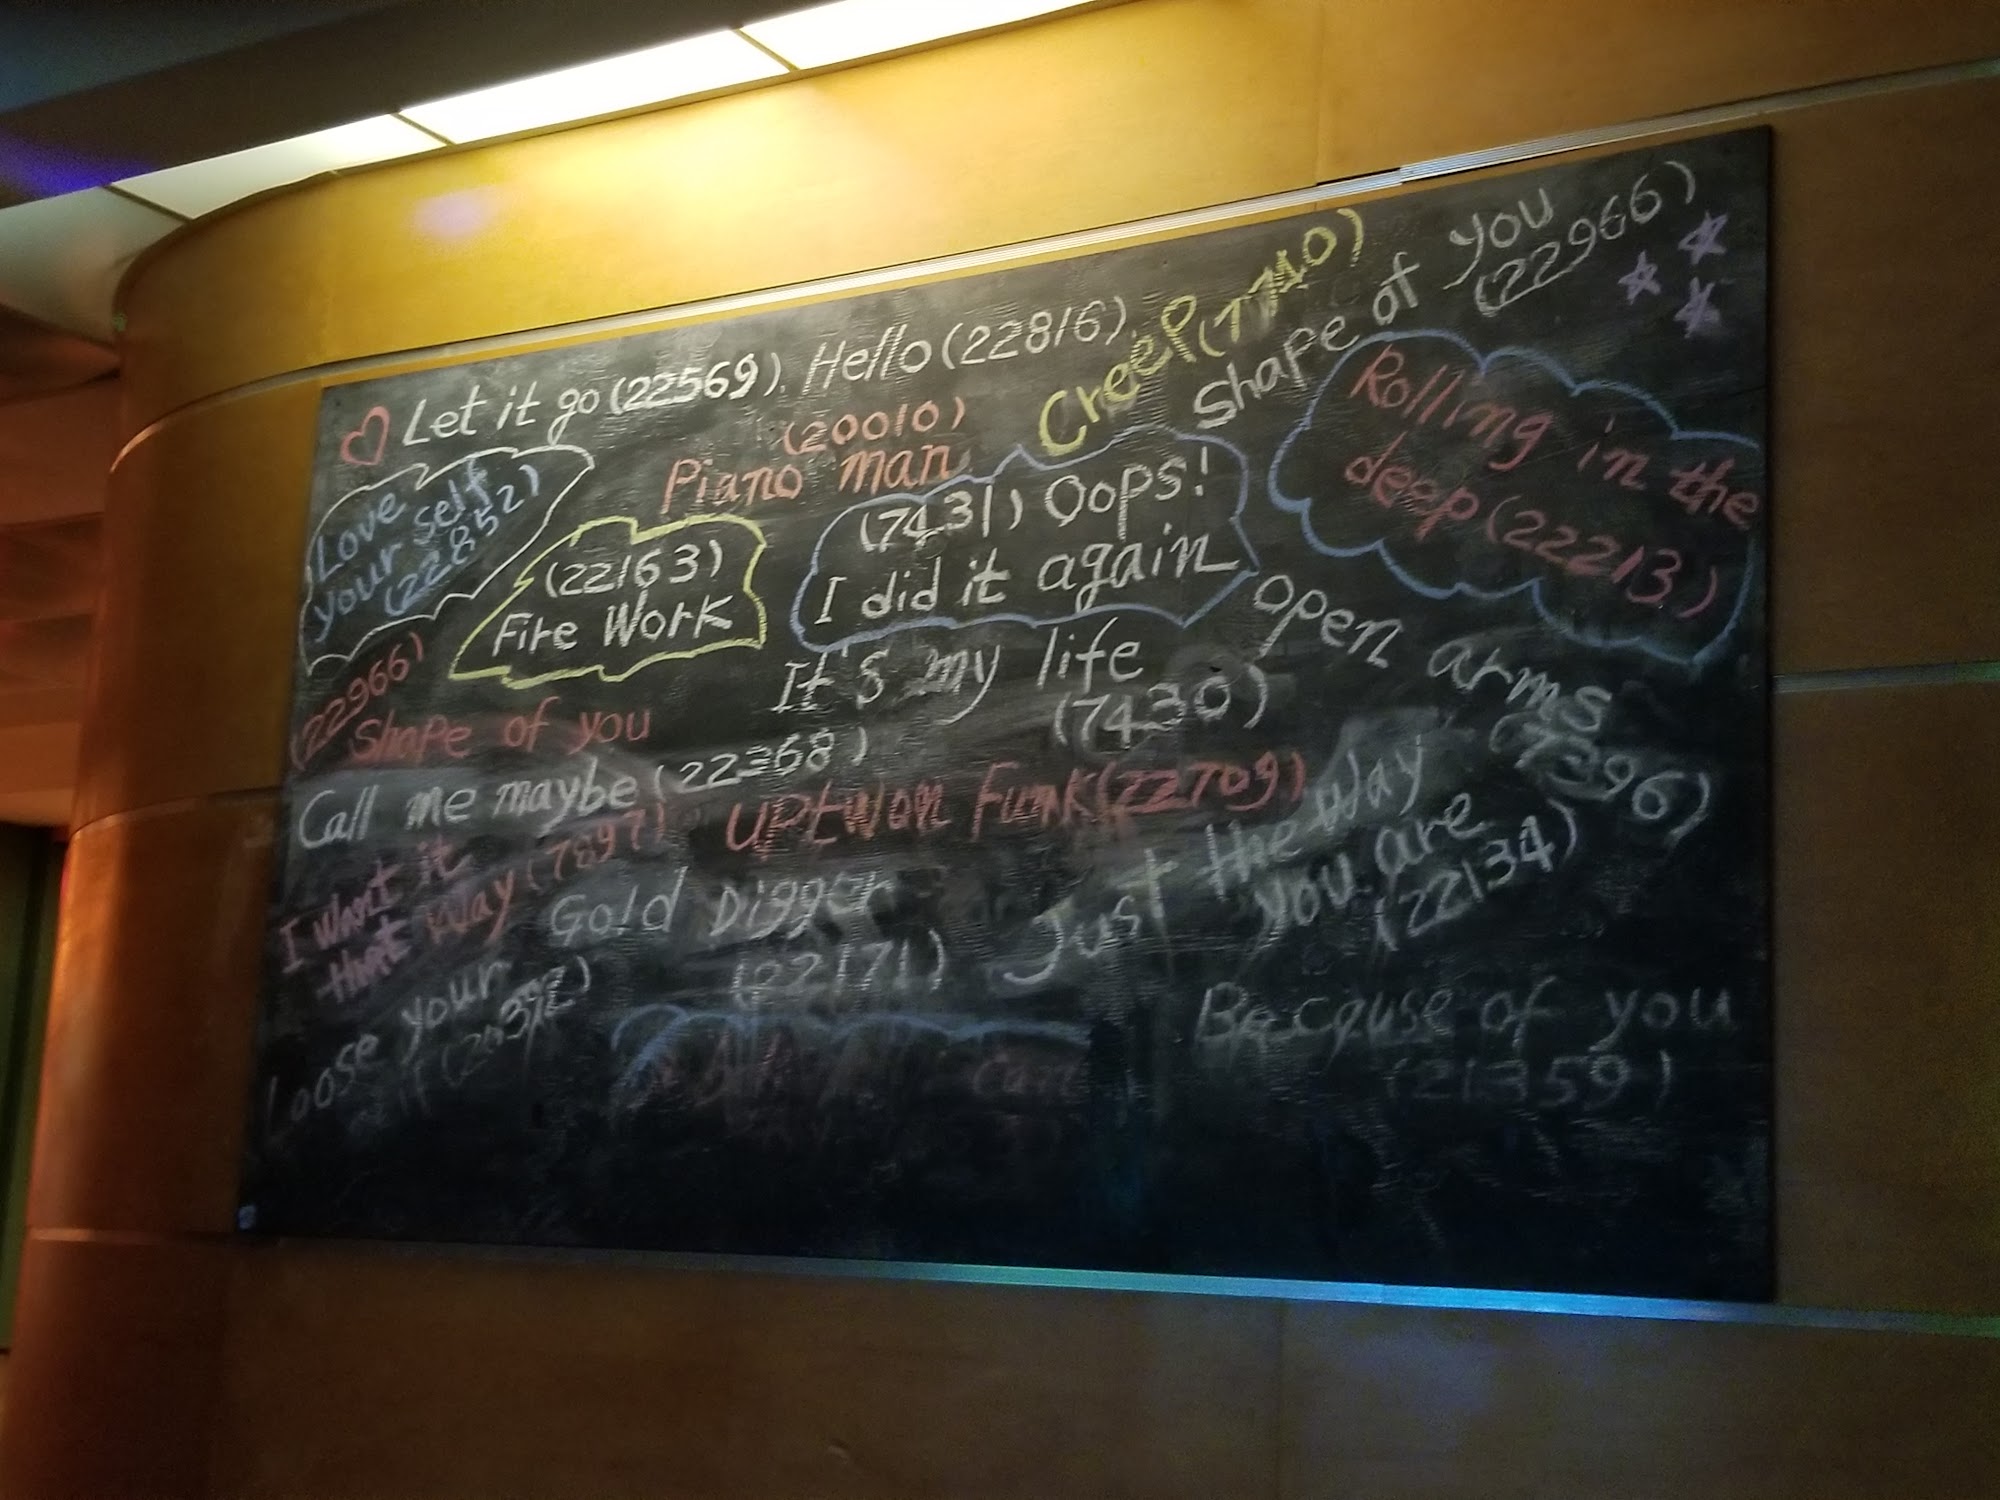 Let it go (22569). Hello (22816)
Creep (7710)
Shape of you
(22966)
Love
your self
(22852)
(20010)
Piano man
(22163)
Fire Work
(7431) Oops!
I did it again
Rolling in the
deep (22213)
(22966)
Shape of you
It's my life
(7430)
open arms
(7396)
Call me maybe (22368)
Uptwon Funk (22709)
I want it
that way (7897)
Gold Digger
(22171)
Just the way
you are
(22134)
Loose your
(20392)
Because of you
(21359)